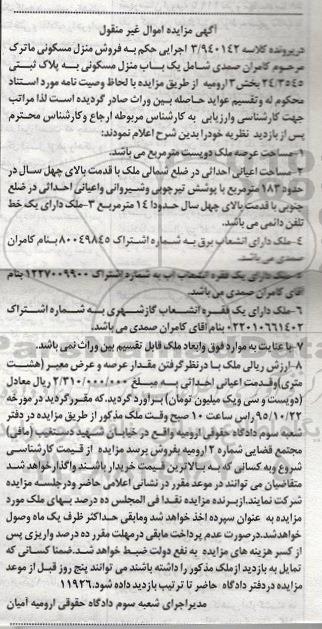 آگهی مزایده اموال غیر منقول
درپرونده کلاسه ۳/۹۴۰۱۴۲ اجرایی حکم به فروش منزل مسکونی ماترک
مرحوم کامران صمدی شامل یک باب منزل مسکونی به پلاک ثبتی
۲۴/۳۵۴۵ بخش ۳ ارومیه از طریق مزایده با لحاظ وصیت نامه مورد استناد
محکوم له وتقسیم عواید حاصله بین وراث صادر گردیده است لذا مراتب
جهت کارشناسی وارزیابی به کارشناس مربوطه ارجاع وکارشناس محترم
پس از بازدید نظریه خودرا بدین شرح اعلام نمودند:
۱-مساحت عرصه ملک دویست مترمربع می باشد.
۲-مساحت اعیانی احداثی در ضلع شمالی ملک با قدمت بالای چهل سال در
حدود ۱۸۳ مترمربع با پوشش تیرچوبی وشیروانی واعیانی احداثی در ضلع
جنوبی با قدمت بالای چهل سال حدودا ۱۴ مترمربع ۳-ملک دارای یک خط
تلفن دائمی می باشد.
۴-ملک دارای انشعاب برق به شماره اشتراک ۸۰۰۴۹۸۴۵ بنام کامران
صمدی می باشد.
ملک دارای یک فقره انشعاب آب به شماره اشتراک ۱۲۲۷۰۰۹۹۰۰ بنام
آقای کامران صمدی می باشد.
۶-ملک دارای یک فقره انشعاب گازشهری به شماره اشتراک
۰۲۲۰۱۰۶۶۱۴۰۲ بنام آقای کامران صمدی می باشد.
۷-با عنایت به موارد فوق وابعاد ملک قابل تقسیم بین وراث نمی باشد.
۸-ارزش ریالی ملک با درنظر گرفتن مقدار عرصه و عرض معبر (هشت
متری) وقدمت اعیانی احداثی به مبلغ ۲/۳۱۰/۰۰۰/۰۰۰ ریال معادل
(دویست و سی ویک میلیون تومان) برآورد گردید. که مقرر گردید در مورخه
۹۵/۱۰/۲۲ راس ساعت ۱۰ صبح وقت ملک مذکور از طریق مزایده در دفتر
شعبه سوم دادگاه حقوقی ارومیه واقع در خیابان شهید دستغیب (مافی)
مجتمع قضایی شماره ۲ ارومیه بفروش برسد مزایده از قیمت کارشناسی
شروع وبه کسانی که به بالاترین قیمت خریدار باشند واگذار خواهد شد
متقاضیان می توانند در موعد مقرر در نشانی اعلامی حاضر ودرجلسه مزایده
شرکت نمایند. ازبرنده مزایده نقدا فی المجلس ده درصد بهای ملک مورد
مزایده به عنوان سپرده اخذ خواهد شد ومابقی حداکثر ظرف یک ماه وصول
خواهدشد. درصورت عدم پرداخت مابقی درمهلت مقرر ده درصد واریزی پس
از کسر هزینه های مزایده به نفع دولت ضبط خواهد شد. ضمنا کسانی که
تمایل به بازدید ازملک مذکور را داشته باشند می توانند پنج روز قبل از موعد
مزایده دردفتر دادگاه حاضر تا ترتیب بازدید داده شود. ۱۱۹۲۶
مدیراجرای شعبه سوم دادگاه حقوقی ارومیه امیان